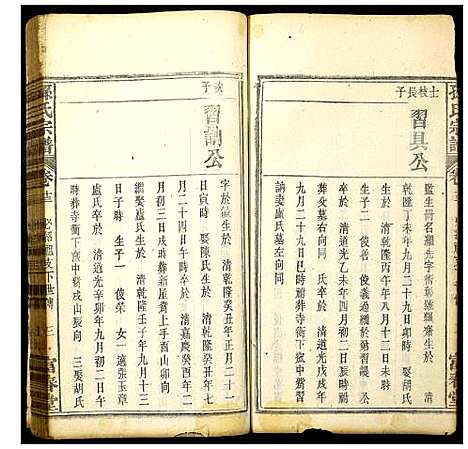 孫氏宗譜
士枝長子
習具公
監生冊名顯先字彰號羅齋生於 清
乾隆丁未年九月二十九日卯時 娶胡氏
生於 清乾隆丙午年八月十二日未時
生子二 俊善 俊義過繼勤習調
卒於 清道光乙未年四月初二日辰時葬
右向同 氏卒於 清道光戊戌年
九月二十九日巳時葬寺衝下窊中嘴習
調妻盧氏墓左向同
次子
習調公
字於 生於 清乾隆癸丑年正月二十一
日寅時 娶陳氏生於 清乾隆癸丑年七
月二十四日午時卒於 清嘉慶癸酉年二
月初三日戌時葬新屋嘴上手酉山卯向
繼娶盧氏生於 清乾隆壬子年九月十三
日子時 生子一 俊榮 女一適張玉章
盧氏卒於 清道光辛卯年九月初二日午
時葬寺衝下窊中嘴戌山辰向 三娶胡氏
孫氏宗譜
卷十三
下世 三
富春堂